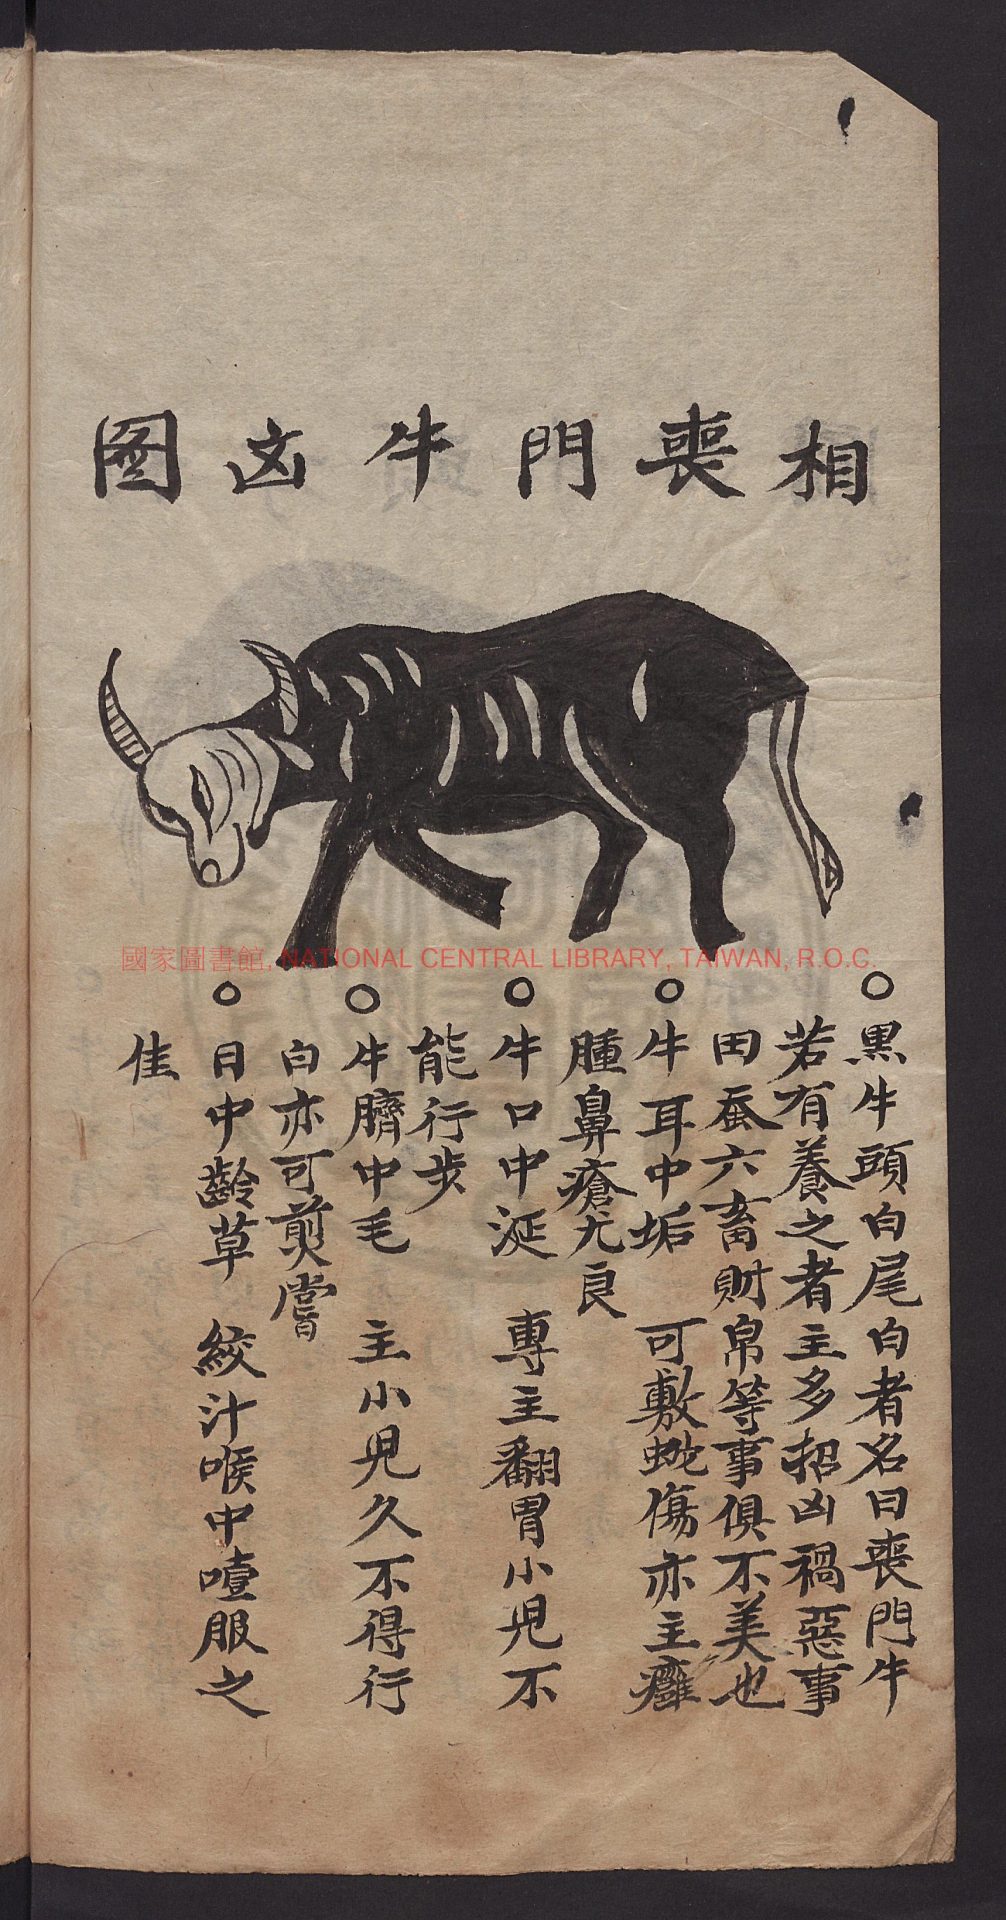 相喪門牛凶圖
國家圖書館, NATIONAL CENTRAL LIBRARY, TAIWAN, R.O.C.
○黒牛頭白尾白者名曰喪門牛
若有養之者主多招凶禍惡事
田蚕六畜財帛等事俱不美也
○牛耳中垢 可敷蛇傷亦主癰
腫鼻瘡尤良
○牛口中涎 專主翻胃小児不
能行步
○牛臍中毛 主小児久不得行
白亦可煎嘗
○日中齡草 絞汁喉中噎服之
佳